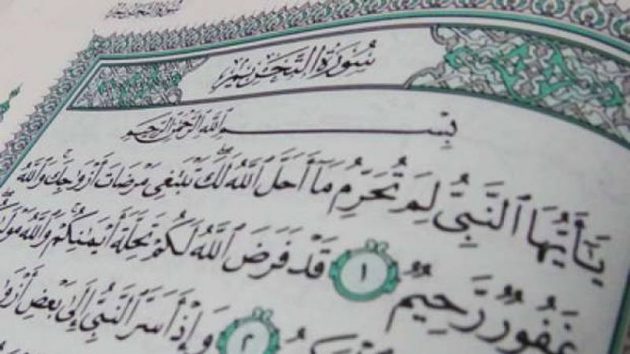 سُورَةُ التَّحْرِيمِ
بِسْمِ اللَّهِ الرَّحْمَٰنِ الرَّحِيمِ
يَٰٓأَيُّهَا ٱلنَّبِىُّ لِمَ تُحَرِّمُ مَآ أَحَلَّ ٱللَّهُ لَكَۖ تَبْتَغِى مَرْضَاتَ أَزْوَٰجِكَۚ وَٱللَّهُ
غَفُورٌ رَّحِيمٌ ١ قَدْ فَرَضَ ٱللَّهُ لَكُمْ تَحِلَّةَ أَيْمَٰنِكُمْۚ وَٱللَّهُ
٢ وَإِذْ أَسَرَّ ٱلنَّبِىُّ إِلَىٰ بَعْضِ